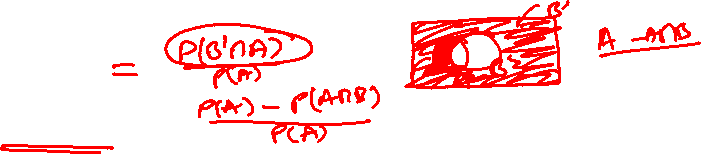 = P(B'∩A)
P(A)
P(A) - P(A∩B)
P(A)
B'
B
A - A∩B